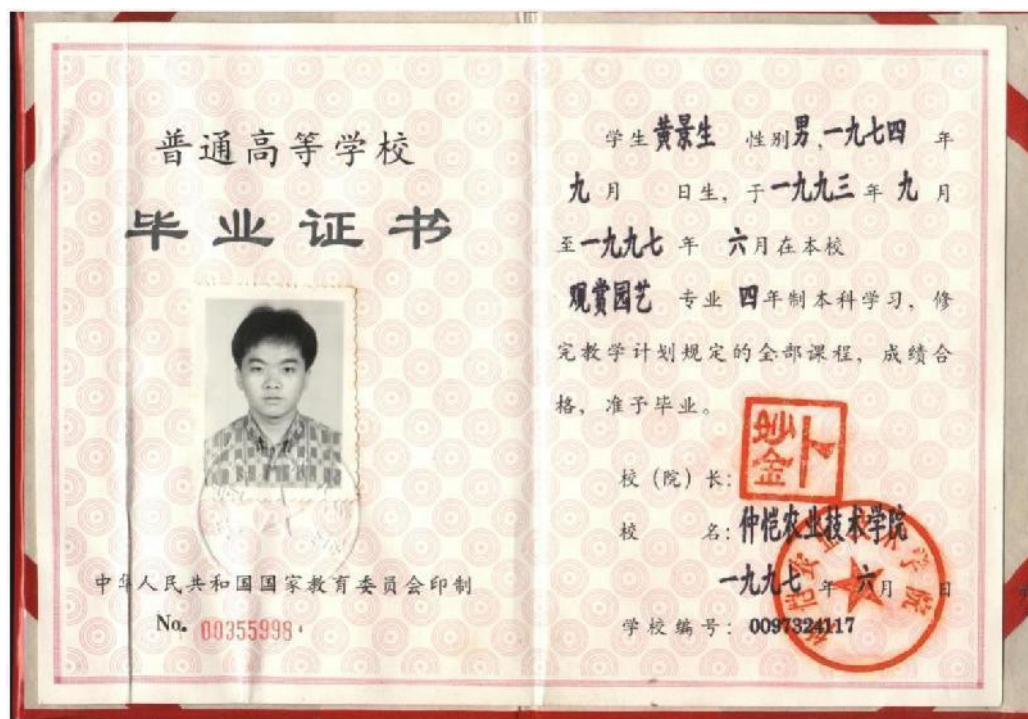 普通高等学校
毕业证书
中华人民共和国国家教育委员会印制
No. 00355998
学生黄景生 性别男,一九七四 年
九 月 日生, 于一九九三 年 九 月
至一九九七 年 六月在本校
观赏园艺 专业 四年制本科学习, 修
完教学计划规定的全部课程, 成绩合
格, 准予毕业。
校 (院) 长:
校 名: 仲恺农业技术学院
一九九七 年 六月 日
学校编号: 0097324117